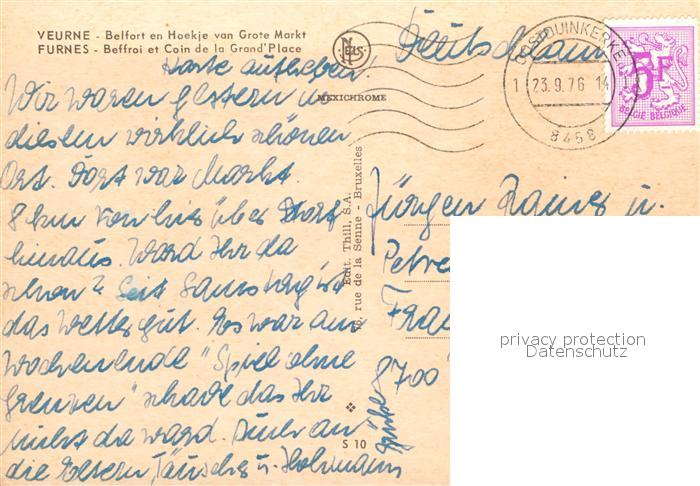 VEURNE - Belfort en Hoekje van Grote Markt
FURNES - Beffroi et Coin de la Grand'Place
NELS
MEXICHROME
Karte aufheben!
Wir waren gestern in
diesem wirklich schönen
Ort. Dort war Markt.
8 km von hier über Dorf
hinaus. Ward Ihr da
schon? Seit Samstag ist
das Wetter gut. Es war am
Wochenende "Spiel ohne
Grenzen" schade das Ihr
nicht da ward. Auch an
die Eltern, u.
Grüße
Edit. Thill, S.A.
rue de la Senne - Bruxelles
S 10
Deutschland
OOSTDUINKERKE
1 23.9.76 14
8458
5F
BELGIE-BELGIQUE
Jürgen u.
8700
privacy protection
Datenschutz